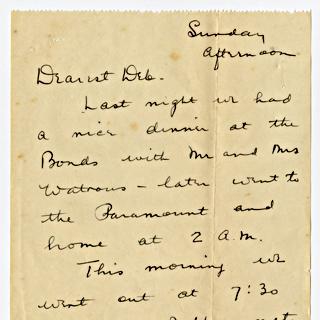 Sunday
afternoon
Dearest Deb.
Last night we had
a nice dinner at the
Bonds with Mr and Mrs
Watrous - later went to
the Paramount and
home at 2 A.M.
This morning we
went out at 7:30